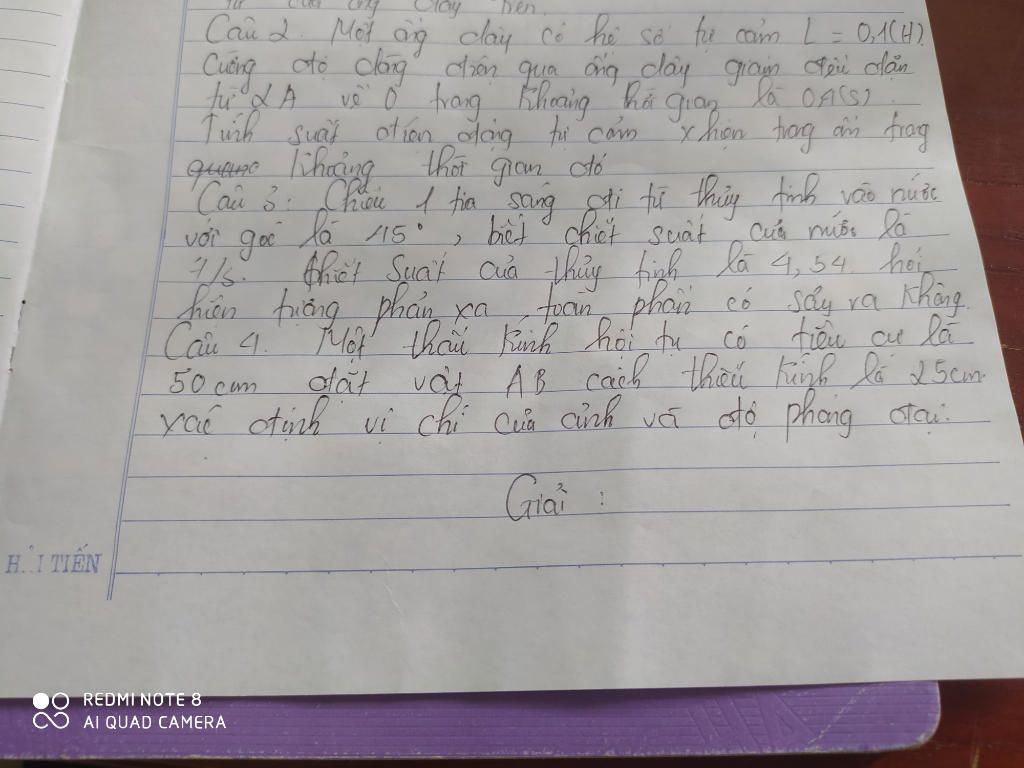 từ của ống dây trên.
Câu 2. Một ống dây có hệ số tự cảm L = 0,1(H).
Cường độ dòng điện qua ống dây giảm đều dần
từ 2A về 0 trong khoảng thời gian là 0,1(s).
Tính suất điện động tự cảm x hiện trong ốn trong
khoảng thời gian đó
Câu 3: Chiếu 1 tia sáng đi từ thủy tinh vào nước
với góc là 45°, biết chiết suất của nước là
4/3. chiết suất của thủy tinh là 1,54. hỏi
hiện tượng phản xạ toàn phần có sảy ra không.
Câu 4. Một thấu kính hội tụ có tiêu cự là
50 cm đặt vật AB cách thấu kính là 25cm.
xác định vị chí của ảnh và độ phóng đại.
Giải :
TIẾN
REDMI NOTE 8
AI QUAD CAMERA